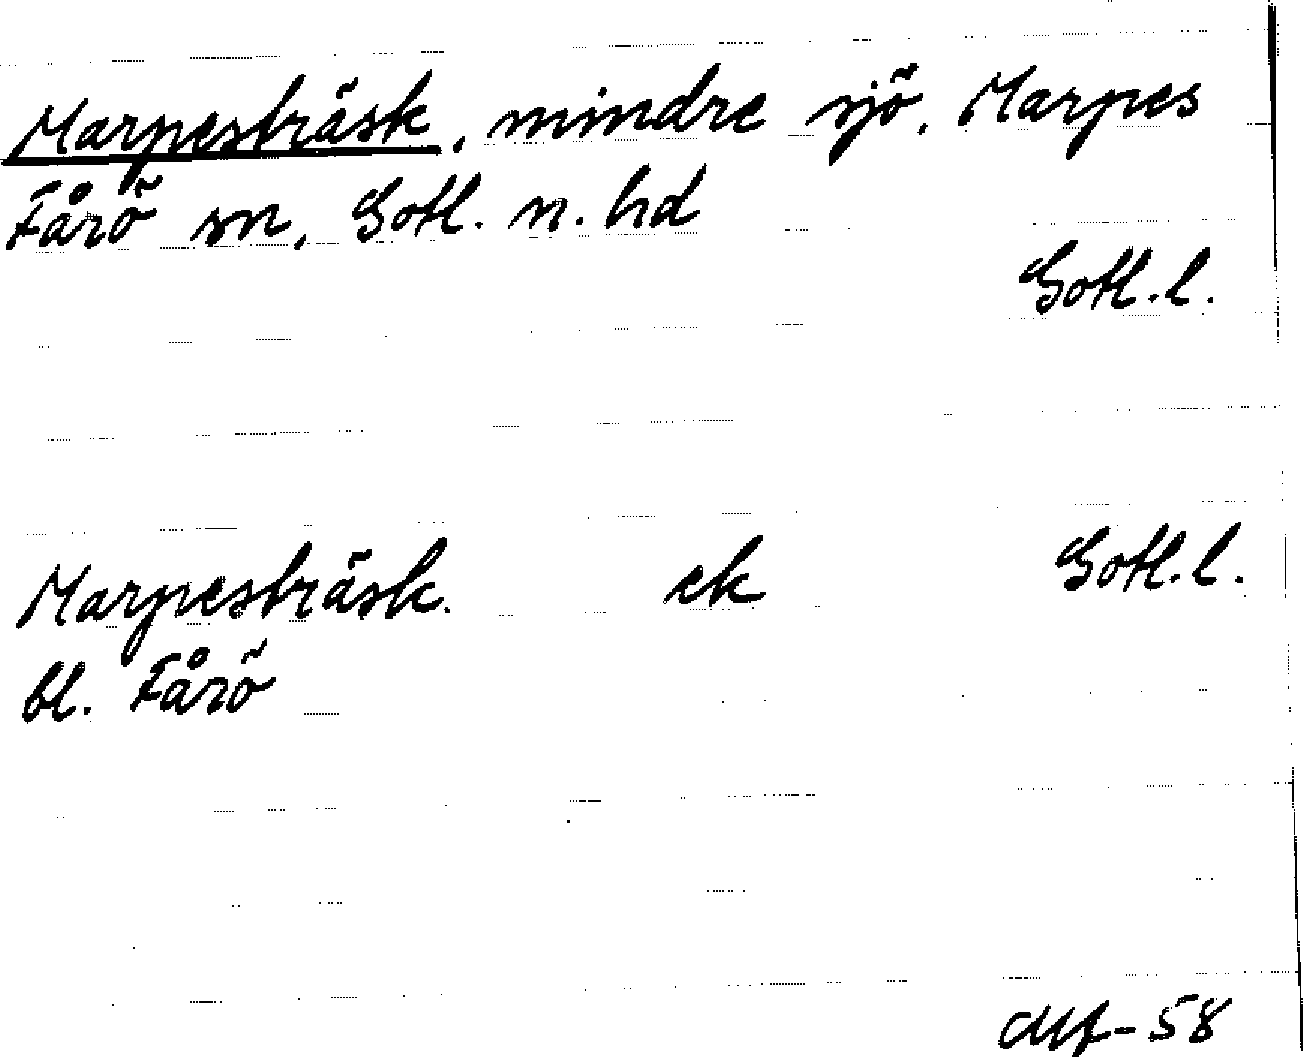 Marpesträsk, mindre sjö, Marpes
Fårö sn, Gotl. n. hd
Gotl. l.
Marpesträsk. ek Gotl. l.
bl. Fårö
-58